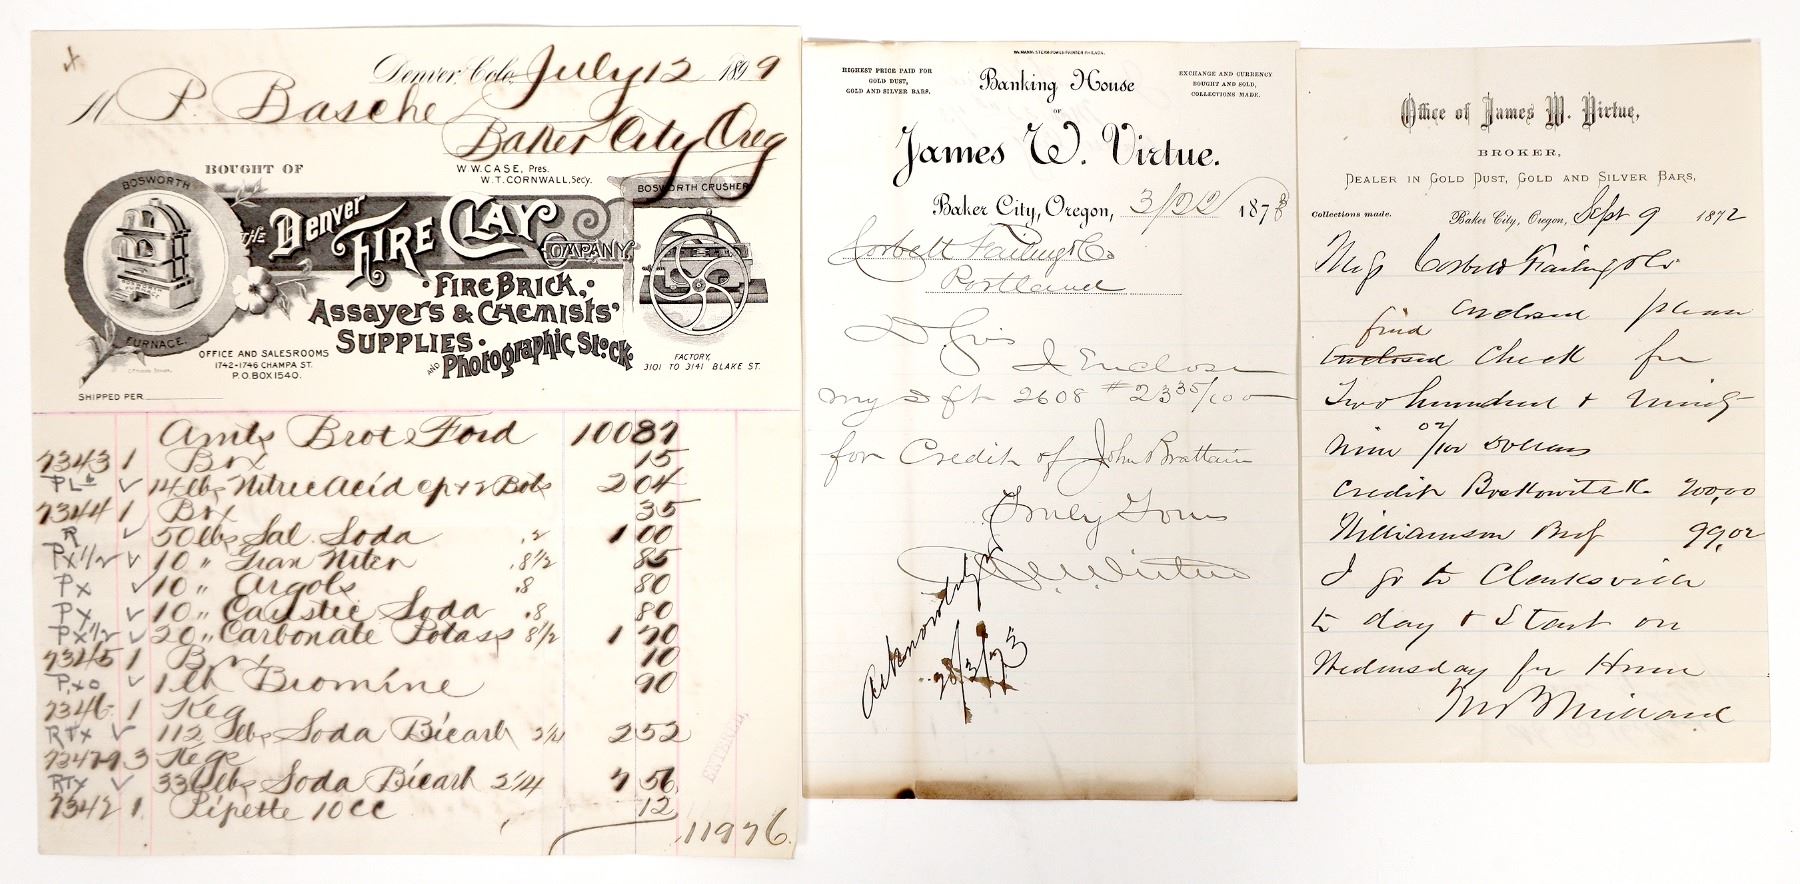 Denver, Colo, July 12 1899
M P. Basche
Baker City Oreg
BOUGHT OF
W.W. CASE, Pres.
W.T. CORNWALL, Secy.
BOSWORTH
FURNACE.
BOSWORTH CRUSHER
THE Denver FIRE CLAY COMPANY.
FIRE BRICK,
ASSAYERS & CHEMISTS'
SUPPLIES.
AND Photographic Stock.
OFFICE AND SALESROOMS
1742-1746 CHAMPA ST.
P.O. BOX 1540.
FACTORY,
3101 TO 3141 BLAKE ST.
SHIPPED PER
Amts Brot Ford 100 87
7343 1 Box 15
14 lbs Nitric Acid cp + 2 Bots 2 04
7344 1 Box 35
R 50 lbs Sal Soda .2 1 00
Px 1/2 10 " Gran Niter .8 1/2 85
Px 10 " Argols .8 80
Px 10 " Caustic Soda .8 80
Px 1/2 20 " Carbonate Potass 8 1/2 1 70
7345 1 Box 10
1 lb Bromine 90
7346 1 Keg
RTx 112 lbs Soda Bicarb 2 1/4 2 52
7347-9 3 Kegs
RTx 336 lbs Soda Bicarb 2 1/4 7 56
7342 1 Pipette 10 CC 12
119 76
ENTERED.
HIGHEST PRICE PAID FOR
GOLD DUST,
GOLD AND SILVER BARS.
Banking House
OF
EXCHANGE AND CURRENCY
BOUGHT AND SOLD,
COLLECTIONS MADE.
James W. Virtue.
Baker City, Oregon, 3/22 1873
Corbett Failing & Co
Portland
D. Sirs
I Enclose
my Dft 2608 # 23 35/100
for Credit of John Brattain
Truly Yours
J. W. Virtue
Acknowledged
28/3/73
Office of James W. Virtue,
BROKER,
DEALER IN GOLD DUST, GOLD AND SILVER BARS,
Collections made.
Baker City, Oregon, Sept 9 1872
Messrs Corbett Failing & Co
enclosed please
find
Enclosed Check for
Two hundred & Ninety
nine 02/100 Dollars
Credit Boskowitz 200,00
Williamson Bros 99,02
I go to Clarksville
to day & Start on
Wednesday for Home